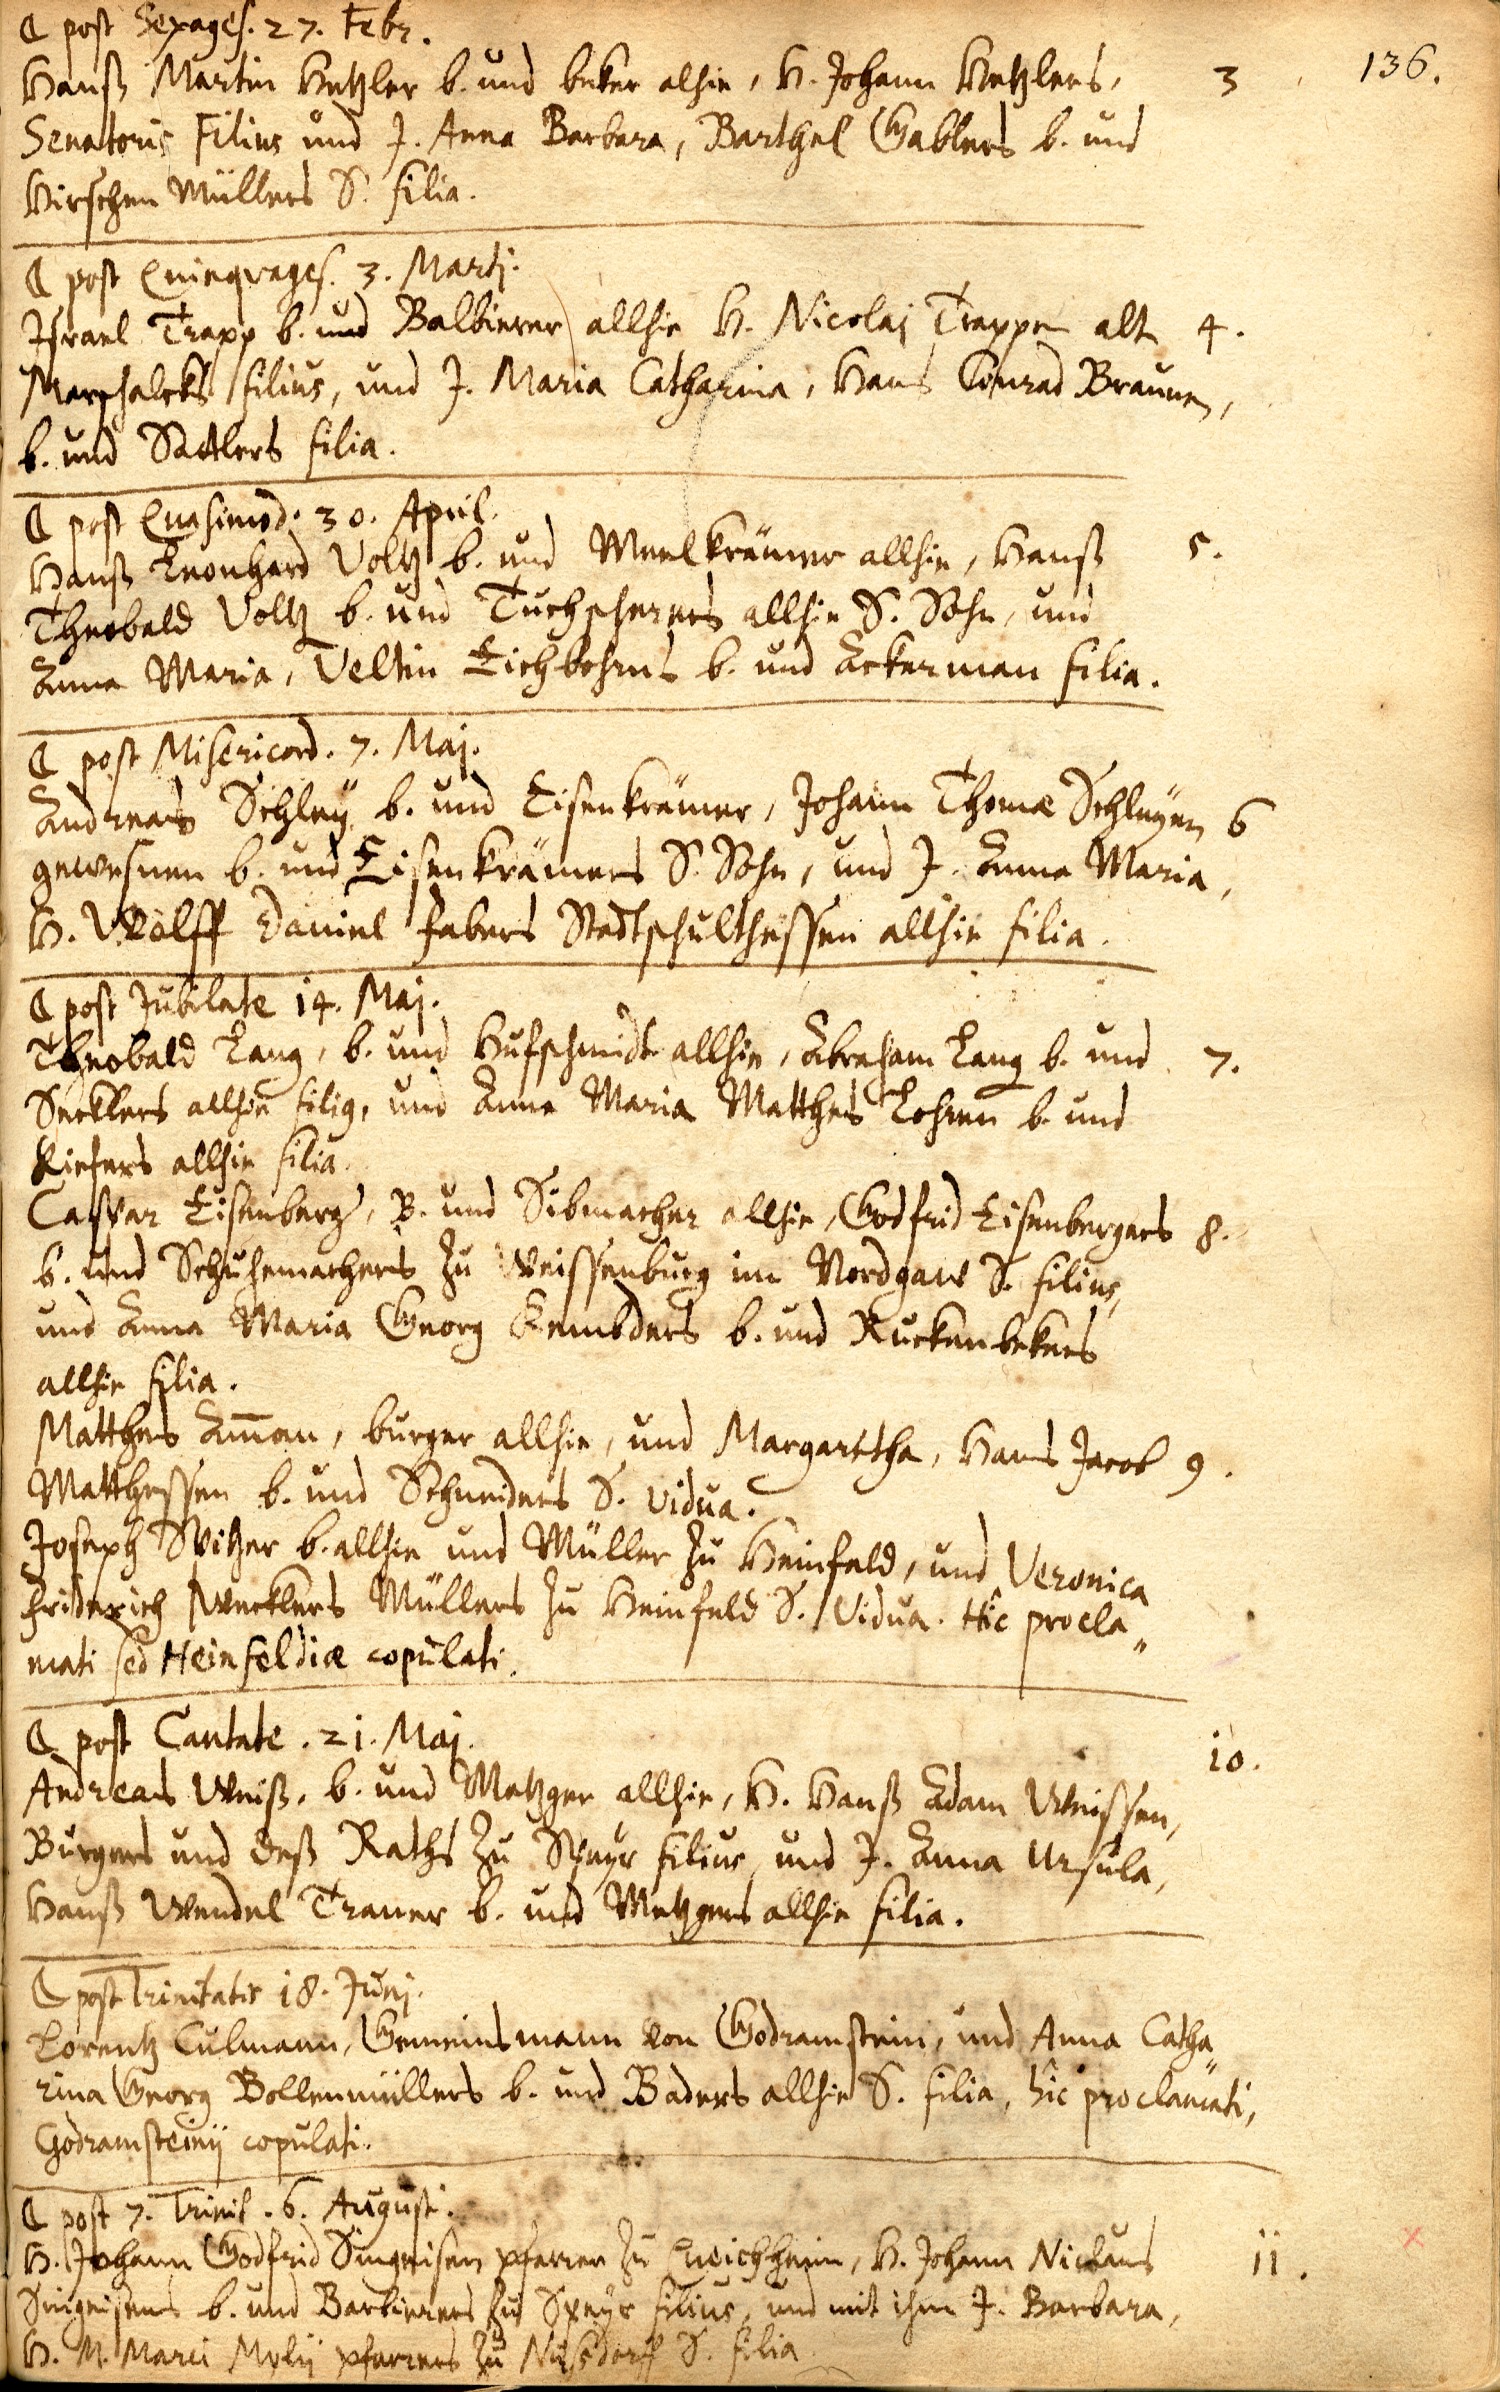 ☾ post Sexages. 27. Febr.
136.
Hanß Martin Hetzler b. und beker alhie, H. Johann Hetzlers, 3
Senatoris Filius und J. Anna Barbara, Barthel Gablers b. und
Hirschen Müllers S. filia.
☾ post Quinqvages. 3. Martj.
Israel Trapp b. und Balbierer allhie H. Nicolaj Trappen alt 4.
Marschalcks filius, und J. Maria Catharina, Hans Conrad Braunen,
b. und Sattlers filia.
☾ post Quasimod. 30. April.
Hanß Leonhard Voltz b. und Meelkrämer allhie, Hanß 5.
Theobald Voltz b. und Tuchscherers allhie S. Sohn, und
Anna Maria, Veltin Eichbohrns b. und Ackerman filia.
☾ post Misericord. 7. Maj.
Andreas Schleÿ b. und Eisenkrämer, Johann Thomæ Schleyen 6
gewesnen b. und Eisenkrämers S. Sohn, und J. Anna Maria,
H. Wolff Daniel Fabers Stadtschulthessen allhie filia.
☾ post Jubilate 14. Maj.
Theobald Lang, b. und Hufschmidt allhie, Abraham Lang b. und 7.
Secklers allhie filig, und Anna Maria Matthes Lohren b. und
Kiefers allhie filia.
Caspar Eisenberg, B. und Sibmacher allhie, Godfrid Eisenbergers 8.
b. und Schuhemachers zu Weissenburg im Nordgaw S. filius,
und Anna Maria Georg Kembders b. und Ruckenbekers
allhie filia.
Matthes Am̄an, burger allhie, und Margaretha, Hans Jacob 9.
Matthessen b. und Schneiders S. vidua.
Joseph Spitzer b. allhie und Müller zu Heinfeld, und Veronica
Friderich Wecklers Müllers zu Heinfeld S. Vidua. Hîc procla„
mati sed Heinfeldiæ copulati.
☾ post Cantate. 21. Maj.
10.
Andreas Weiß, b. und Metzger allhie, H. Hanß Adam Weissen,
Burgers und deß Raths zu Speyr filius, und J. Anna Ursula,
Hanß Wendel Traner b. und Metzgers allhie filia.
☾ post Trinitatis 18. Junj.
Lorentz Culmann, Gemeinsmann von Godramstein, und Anna Catha„
rina Georg Bollenmüllers b. und Baders allhie S. filia, hîc proclamati,
Godramsteinij copulati.
☾ post 7. Trinit. 6. August.
H. Johann Godfrid Singeisen pfarrer zu Queichheim, H. Johann Niclaus 11.
Singeisens b. und Barbierers zu Speyr filius, und mit ihm J. Barbara,
H. M. Marci Mylij pfarrers zu Nusdorff S. filia